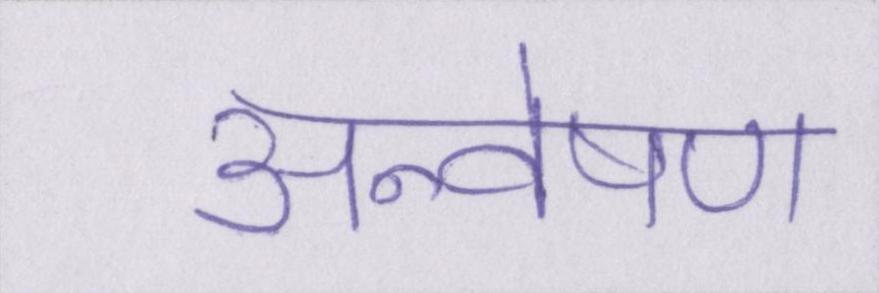 अन्वेषण